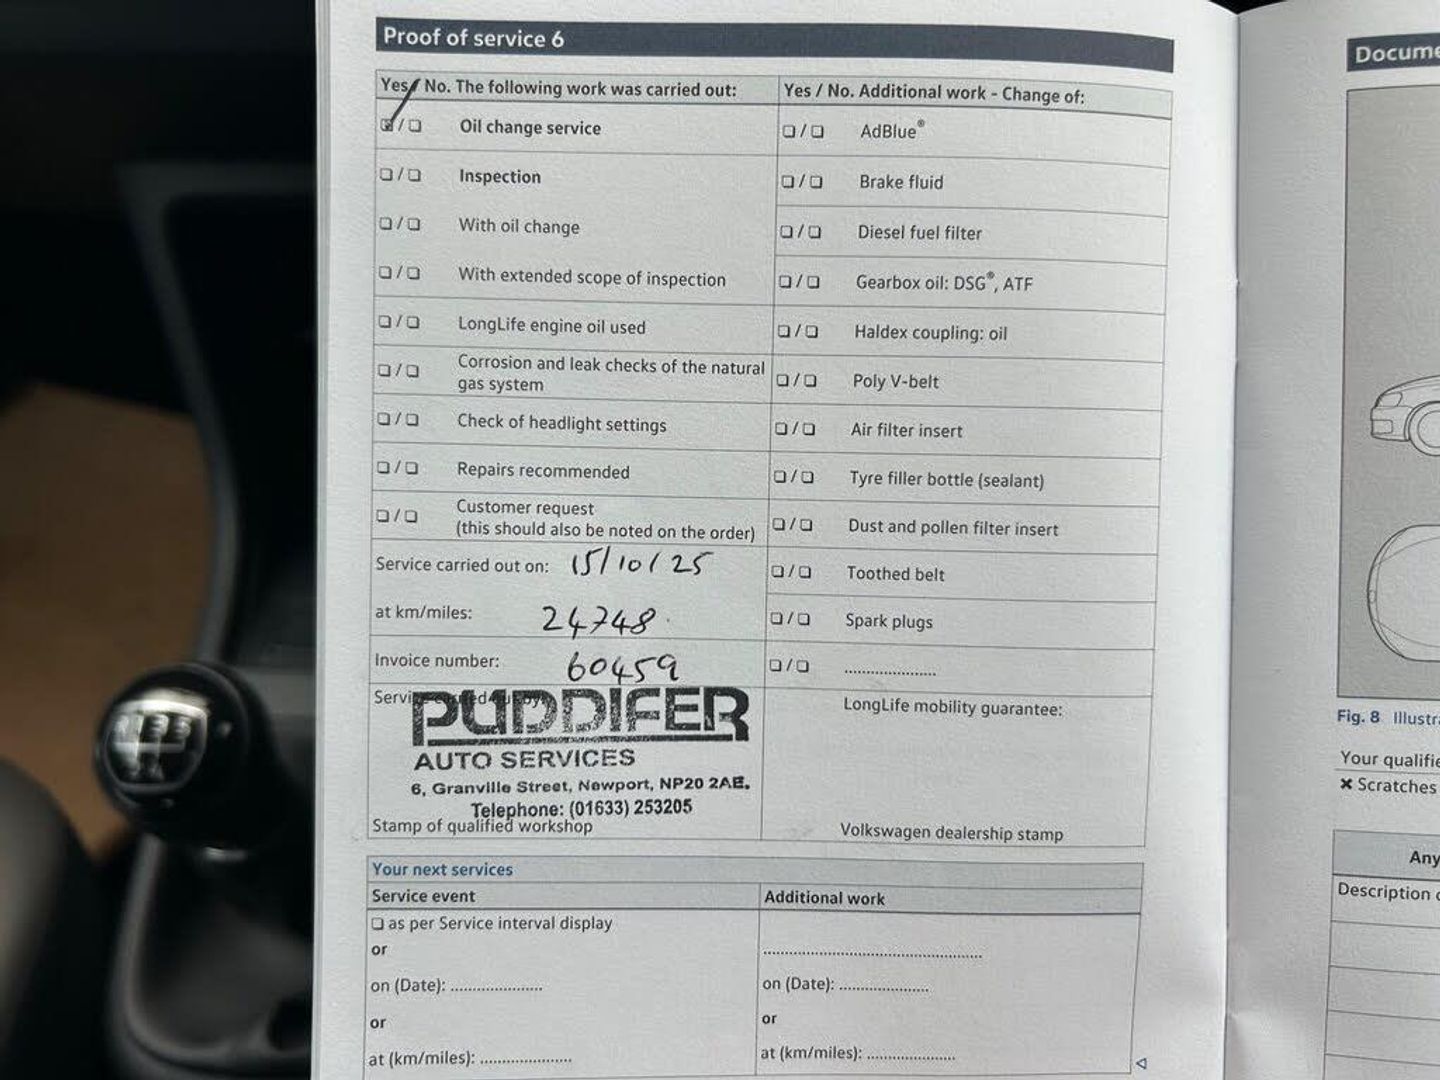 Proof of service 6
Yes / No. The following work was carried out:
☑ / ☐ Oil change service
☐ / ☐ Inspection
☐ / ☐ With oil change
☐ / ☐ With extended scope of inspection
☐ / ☐ LongLife engine oil used
☐ / ☐ Corrosion and leak checks of the natural
gas system
☐ / ☐ Check of headlight settings
☐ / ☐ Repairs recommended
☐ / ☐ Customer request
(this should also be noted on the order)
Service carried out on: 15/10/25
at km/miles: 24748
Invoice number: 60459
PUDDIFER
AUTO SERVICES
6, Granville Street, Newport, NP20 2AE.
Telephone: (01633) 253205
Stamp of qualified workshop
Yes / No. Additional work - Change of:
☐ / ☐ AdBlue®
☐ / ☐ Brake fluid
☐ / ☐ Diesel fuel filter
☐ / ☐ Gearbox oil: DSG®, ATF
☐ / ☐ Haldex coupling: oil
☐ / ☐ Poly V-belt
☐ / ☐ Air filter insert
☐ / ☐ Tyre filler bottle (sealant)
☐ / ☐ Dust and pollen filter insert
☐ / ☐ Toothed belt
☐ / ☐ Spark plugs
☐ / ☐ ......................
LongLife mobility guarantee:
Volkswagen dealership stamp
Your next services
Service event
☐ as per Service interval display
or
on (Date): ......................
or
at (km/miles): ......................
Additional work
......................................................
on (Date): .....................
or
at (km/miles): .....................
Docume
Fig. 8 Illustra
Your qualifie
✖ Scratches
Any
Description